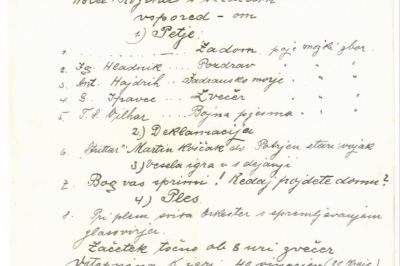 vspored - om
1) Petje.
1. .......... Zadom, poje mojki zbor.
2. Fg. Hladnik .... Pozdrav " " "
3. Ant. Hajdrih .. Jadransko morje " "
4. S. Ipavec ... Zvečer " "
5. F. S. Vilhar ... Bojna pjesma " "
2.) Deklamacija
6. Martin Kočak dv. Pobijen stari vojak
3) Vesela igra v 1 dejanji
7. Bog vas sprimi! Kedaj pojdete domu?
4) Ples.
8. Pri plesu svira orkester s spremljevanjem
glasovirja.
Začetek točno ob 8 uri zvečer
Vstopnina